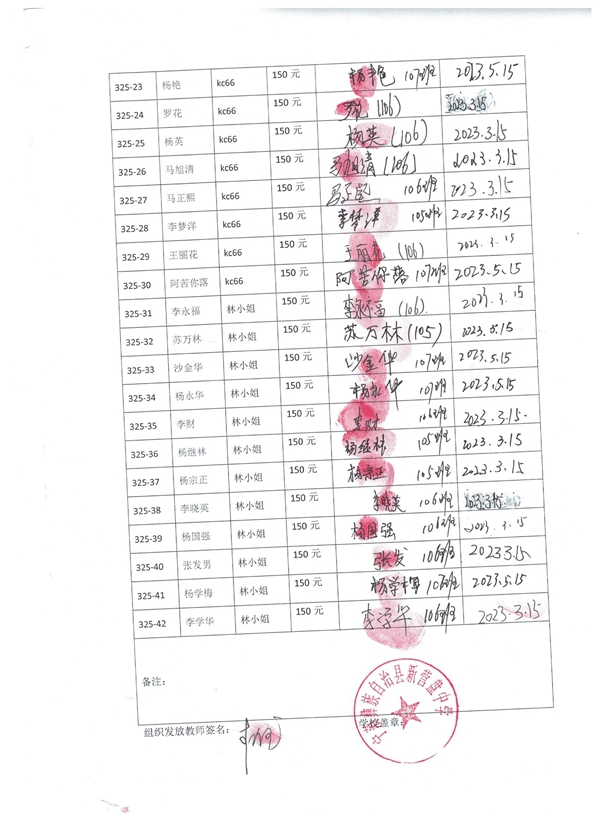 325-23 杨艳 kc66 150 元 杨艳 107班 2023.5.15
325-24 罗花 kc66 150 元 (106) 2023.3.15
325-25 杨英 kc66 150 元 杨英 (106) 2023.3.15
325-26 马旭清 kc66 150 元 马旭清 (106) 2023.3.15
325-27 马正熙 kc66 150 元 106班 2023.3.15
325-28 李梦洋 kc66 150 元 李梦洋 105班 2023.3.15
325-29 王丽花 kc66 150 元 王丽花 (106) 2023.3.15
325-30 阿苦你落 kc66 150 元 阿苦你落 107班 2023.5.15
325-31 李永福 林小姐 150 元 李永福 (106). 2023.3.15
325-32 苏万林 林小姐 150 元 苏万林 (105) 2023.3.15
325-33 沙金华 林小姐 150 元 沙金华 107班 2023.5.15
325-34 杨永华 林小姐 150 元 杨永华 107班 2023.5.15
325-35 李财 林小姐 150 元 李财 106班 2023.3.15.
325-36 杨继林 林小姐 150 元 杨继林 105班 2023.3.15
325-37 杨宗正 林小姐 150 元 杨宗正 105班 2023.3.15
325-38 李晓英 林小姐 150 元 李晓英 106班 2023.3.15
325-39 杨国强 林小姐 150 元 杨国强 106班 2023.3.15
325-40 张发男 林小姐 150 元 张发 106班 2023.3.15
325-41 杨学梅 林小姐 150 元 杨学梅 107班 2023.5.15
325-42 李学华 林小姐 150 元 李学华 106班 2023.3.15
备注：
宁蒗彝族自治县新营盘中学
组织发放教师签名： 学校盖章：